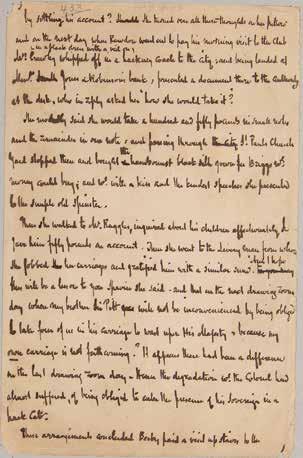 3
433
by settling his account? Should she hoard
and on the next day when Rawdon went out to pay his morning visit to the Club
Mrs. Crawley
whipped off in a hackney Coach to the City: and being landed at
Messrs. Jones & Robinson's bank, presented a document there to the authority
at the desk, who in reply asked her "how she would take it?
She modestly said she would take a hundred and fifty pounds in small notes
and the remainder in one note: and passing through St. Pauls Church
Yard stopped there and bought the handsomest black silk gown for Briggs wh.
money could buy; and wh. with a kiss and the kindest speeches she presented
to the simple old Spinster.
Then she walked to Mr. Raggles, inquired about his children affectionately &
gave him fifty pounds on account. Then she went to the Livery man from whom
she jobbed her carriages and gratified him with a similar sum. And I hope
this will be a lesson to you Spavin she said - and that on the next drawing room
day my brother Sir Pitt will not be inconvenienced by being obliged
to take four of us in his carriage to wait upon His Majesty, because my
own carriage is not forthcoming." It appears there had been a difference
on the last drawing room day - Hence the degradation wh. the Colonel had
almost suffered, of being obliged to enter the presence of his Sovereign in a
hack Cab.
These arrangements concluded Becky paid a visit up stairs to the